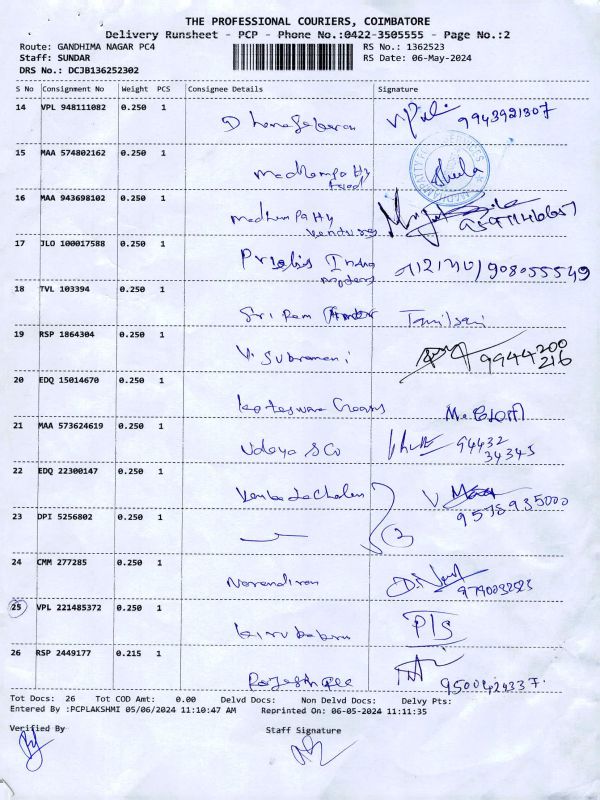 THE PROFESSIONAL COURIERS, COIMBATORE
Delivery Runsheet - PCP - Phone No.:0422-3505555 - Page No.:2
Route: GANDHIMA NAGAR PC4 RS No.: 1362523
Staff: SUNDAR RS Date: 06-May-2024
DRS No.: DCJB136252302
S No Consignment No Weight PCS Consignee Details Signature
14 VPL 948111082 0.250 1 9943921307
15 MAA 574802162 0.250 1 Madhampatty Food
16 MAA 943698102 0.250 1 Madhampatty Ventures
17 JLO 100017588 0.250 1 India 908055549
18 TVL 103394 0.250 1 Sri Ram Tamilsani
19 RSP 1864304 0.250 1 V. Subramani 9944200
216
20 EDQ 15014670 0.250 1 Koteswara
21 MAA 573624619 0.250 1 Udaya & Co 94432
34343
22 EDQ 22300147 0.250 1 Venkatachalam 9578935000
23 DPI 5256802 0.250 1 2
24 CMM 277285 0.250 1 Narendiran 9790032523
25 VPL 221485372 0.250 1 Kirubakaran
26 RSP 2449177 0.215 1 9500424337
Tot Docs: 26 Tot COD Amt: 0.00 Delvd Docs: Non Delvd Docs: Delvy Pts:
Entered By :PCPLAKSHMI 05/06/2024 11:10:47 AM Reprinted On: 06-05-2024 11:11:35
Verified By Staff Signature